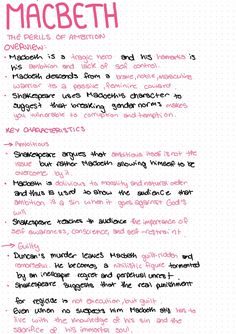 MACBETH
THE PERILS OF AMBITION
OVERVIEW:
• Macbeth is a tragic hero and his hamartia is
his ambition and lack of self control.
• Macbeth descends from a brave, noble, masculine
warrior to a passive, feminine coward
• Shakespeare uses Macbeth's character to
suggest that breaking gender norms makes
you vulnerable to corruption and temptation.
KEY CHARACTERISTICS
→ Ambitious
• Shakespeare argues that ambition itself is not the
issue but rather Macbeth allowing himself to be
overcome by it.
• Macbeth is oblivious to morality and natural order
and thus is used to show the audience that
ambition is a sin when it goes against God's
will
• Shakespeare teaches the audience the importance of
self awareness, conscience, and self-restraint
→ Guilty
• Duncan's murder leaves Macbeth guilt-ridden and
remorseful. He becomes a nihilistic figure tormented
by an inescapable regret and perpetual unrest.
• Shakespeare suggests that the real punishment
for regicide is not execution, but guilt.
• Even when no suspects him Macbeth still has to
live with the knowledge of his sin and the
sacrifice of his immortal soul.